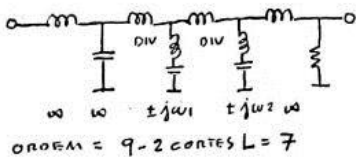 DIV DIV
∞ ∞ ± jω1 ± jω2 ∞
ORDEM = 9 - 2 CORTES L = 7